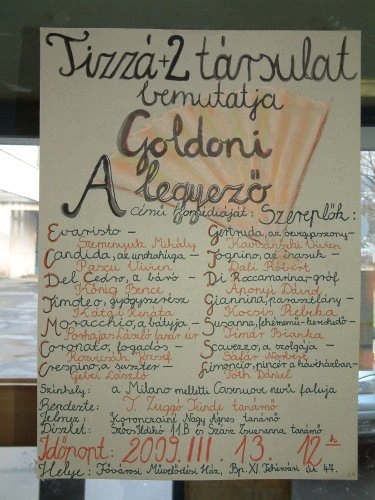 Tizzá+2 társulat
bemutatja
Goldoni
A legyező
című komédiáját: Szereplők:
Evaristo –
Szemenyuk Mihály
Candida, az unokahúga –
Pascu Vivien
Del Cedro, a báró –
König Bence
Timoteo, gyógyszerész
Kátai Renáta
Moracchio, a bátyja –
László
Coronato, fogadós –
József
Crespino, a suszter –
László
Gertruda, az özvegyasszony –
Vivien
Tognino, az inasuk –
Dali Róbert
Di Roccamarina-gróf
Aponyi Dávid
Giannina, parasztlány –
Kocsis Rebeka
Susanna, fehérnemű-kereskedő –
Bianka
Scavezzo, a szolgája –
Norbert
Limoncio, pincér a kávéházban –
Tóth Dániel
Színhely: a Milano melletti Casenuove nevű faluja
Rendezte: T. Zuggó Tünde tanárnő
Jelmez: Koronczainé Nagy Ágnes tanárnő
Díszlet: Szőcs Ildikó 11.B és Szász Zsuzsanna tanárnő
Időpont: 2009. III. 13. 12 h
Helye: Fővárosi Művelődési Ház, Bp. XI. Fehérvári út 47.